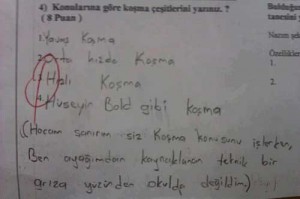 4) Konularına göre koşma çeşitlerini yazınız. ?
( 8 Puan )
1. Yavaş Koşma
2. Orta hızda Koşma
3. Hızlı Koşma
4. Hüseyin Bold gibi koşma
((Hocam sanırım siz koşma konusunu işlerken,
Ben ayağımdan kaynaklanan teknik bir
arıza yüzünden okulda değildim.)
tanesini
Nazım
Özellikler
1.
2.